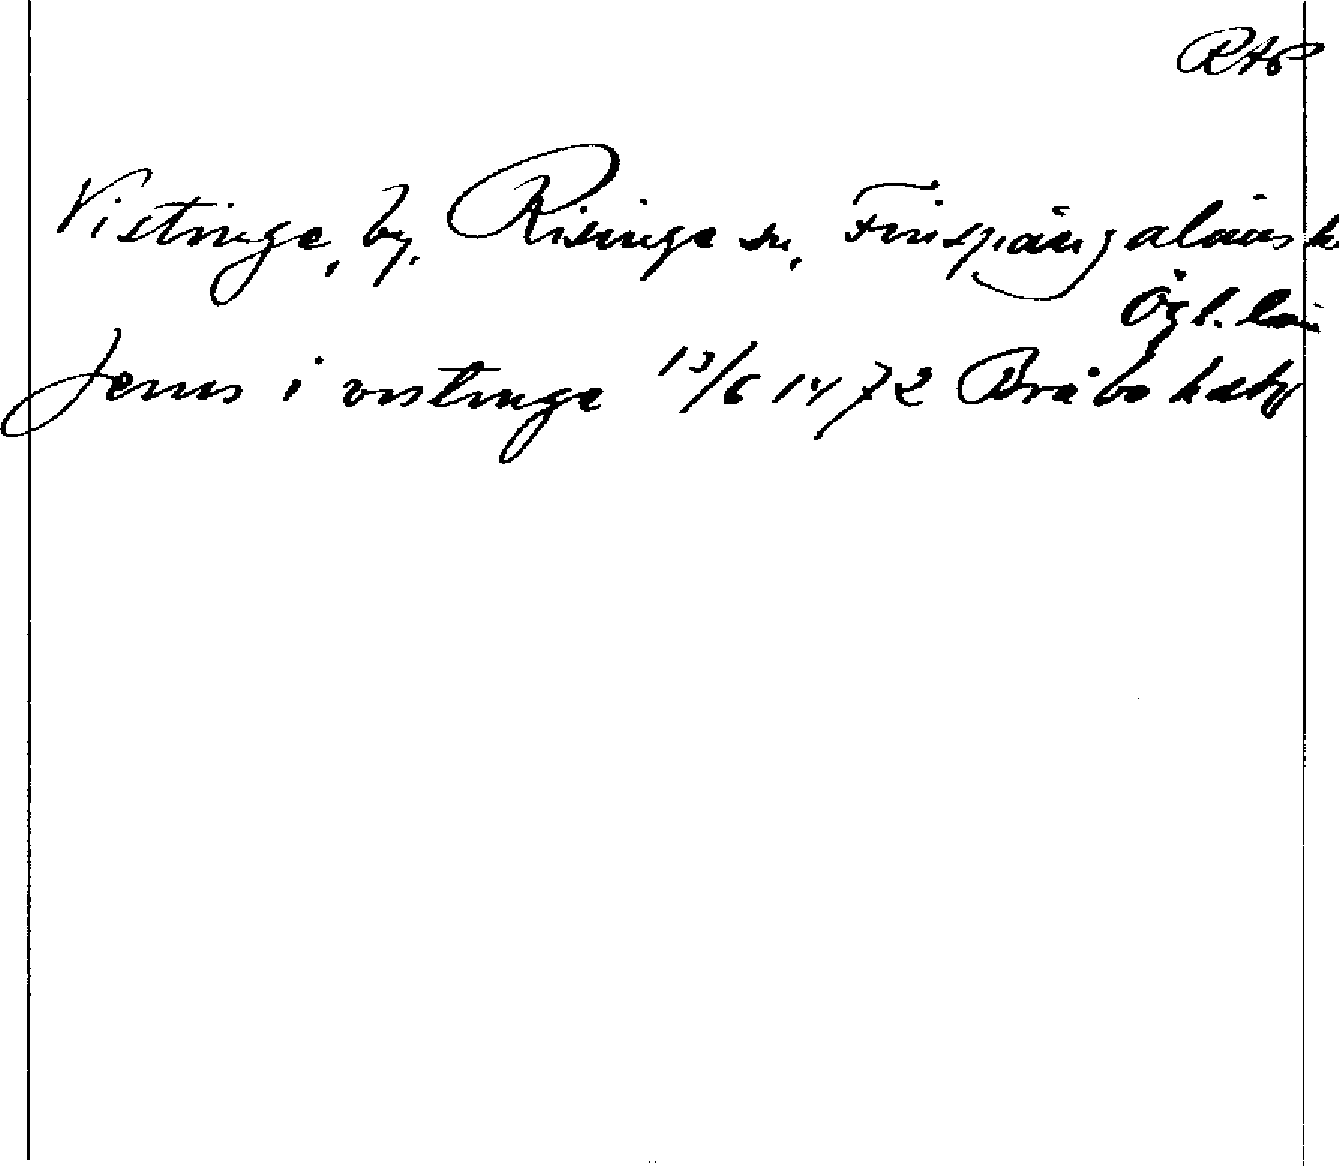 RAP
Vistinge, by, Risinge sn, Finspångalänsh.
Ögl. län
Jenus i vistinge 13/6 1472 Bråbo hds